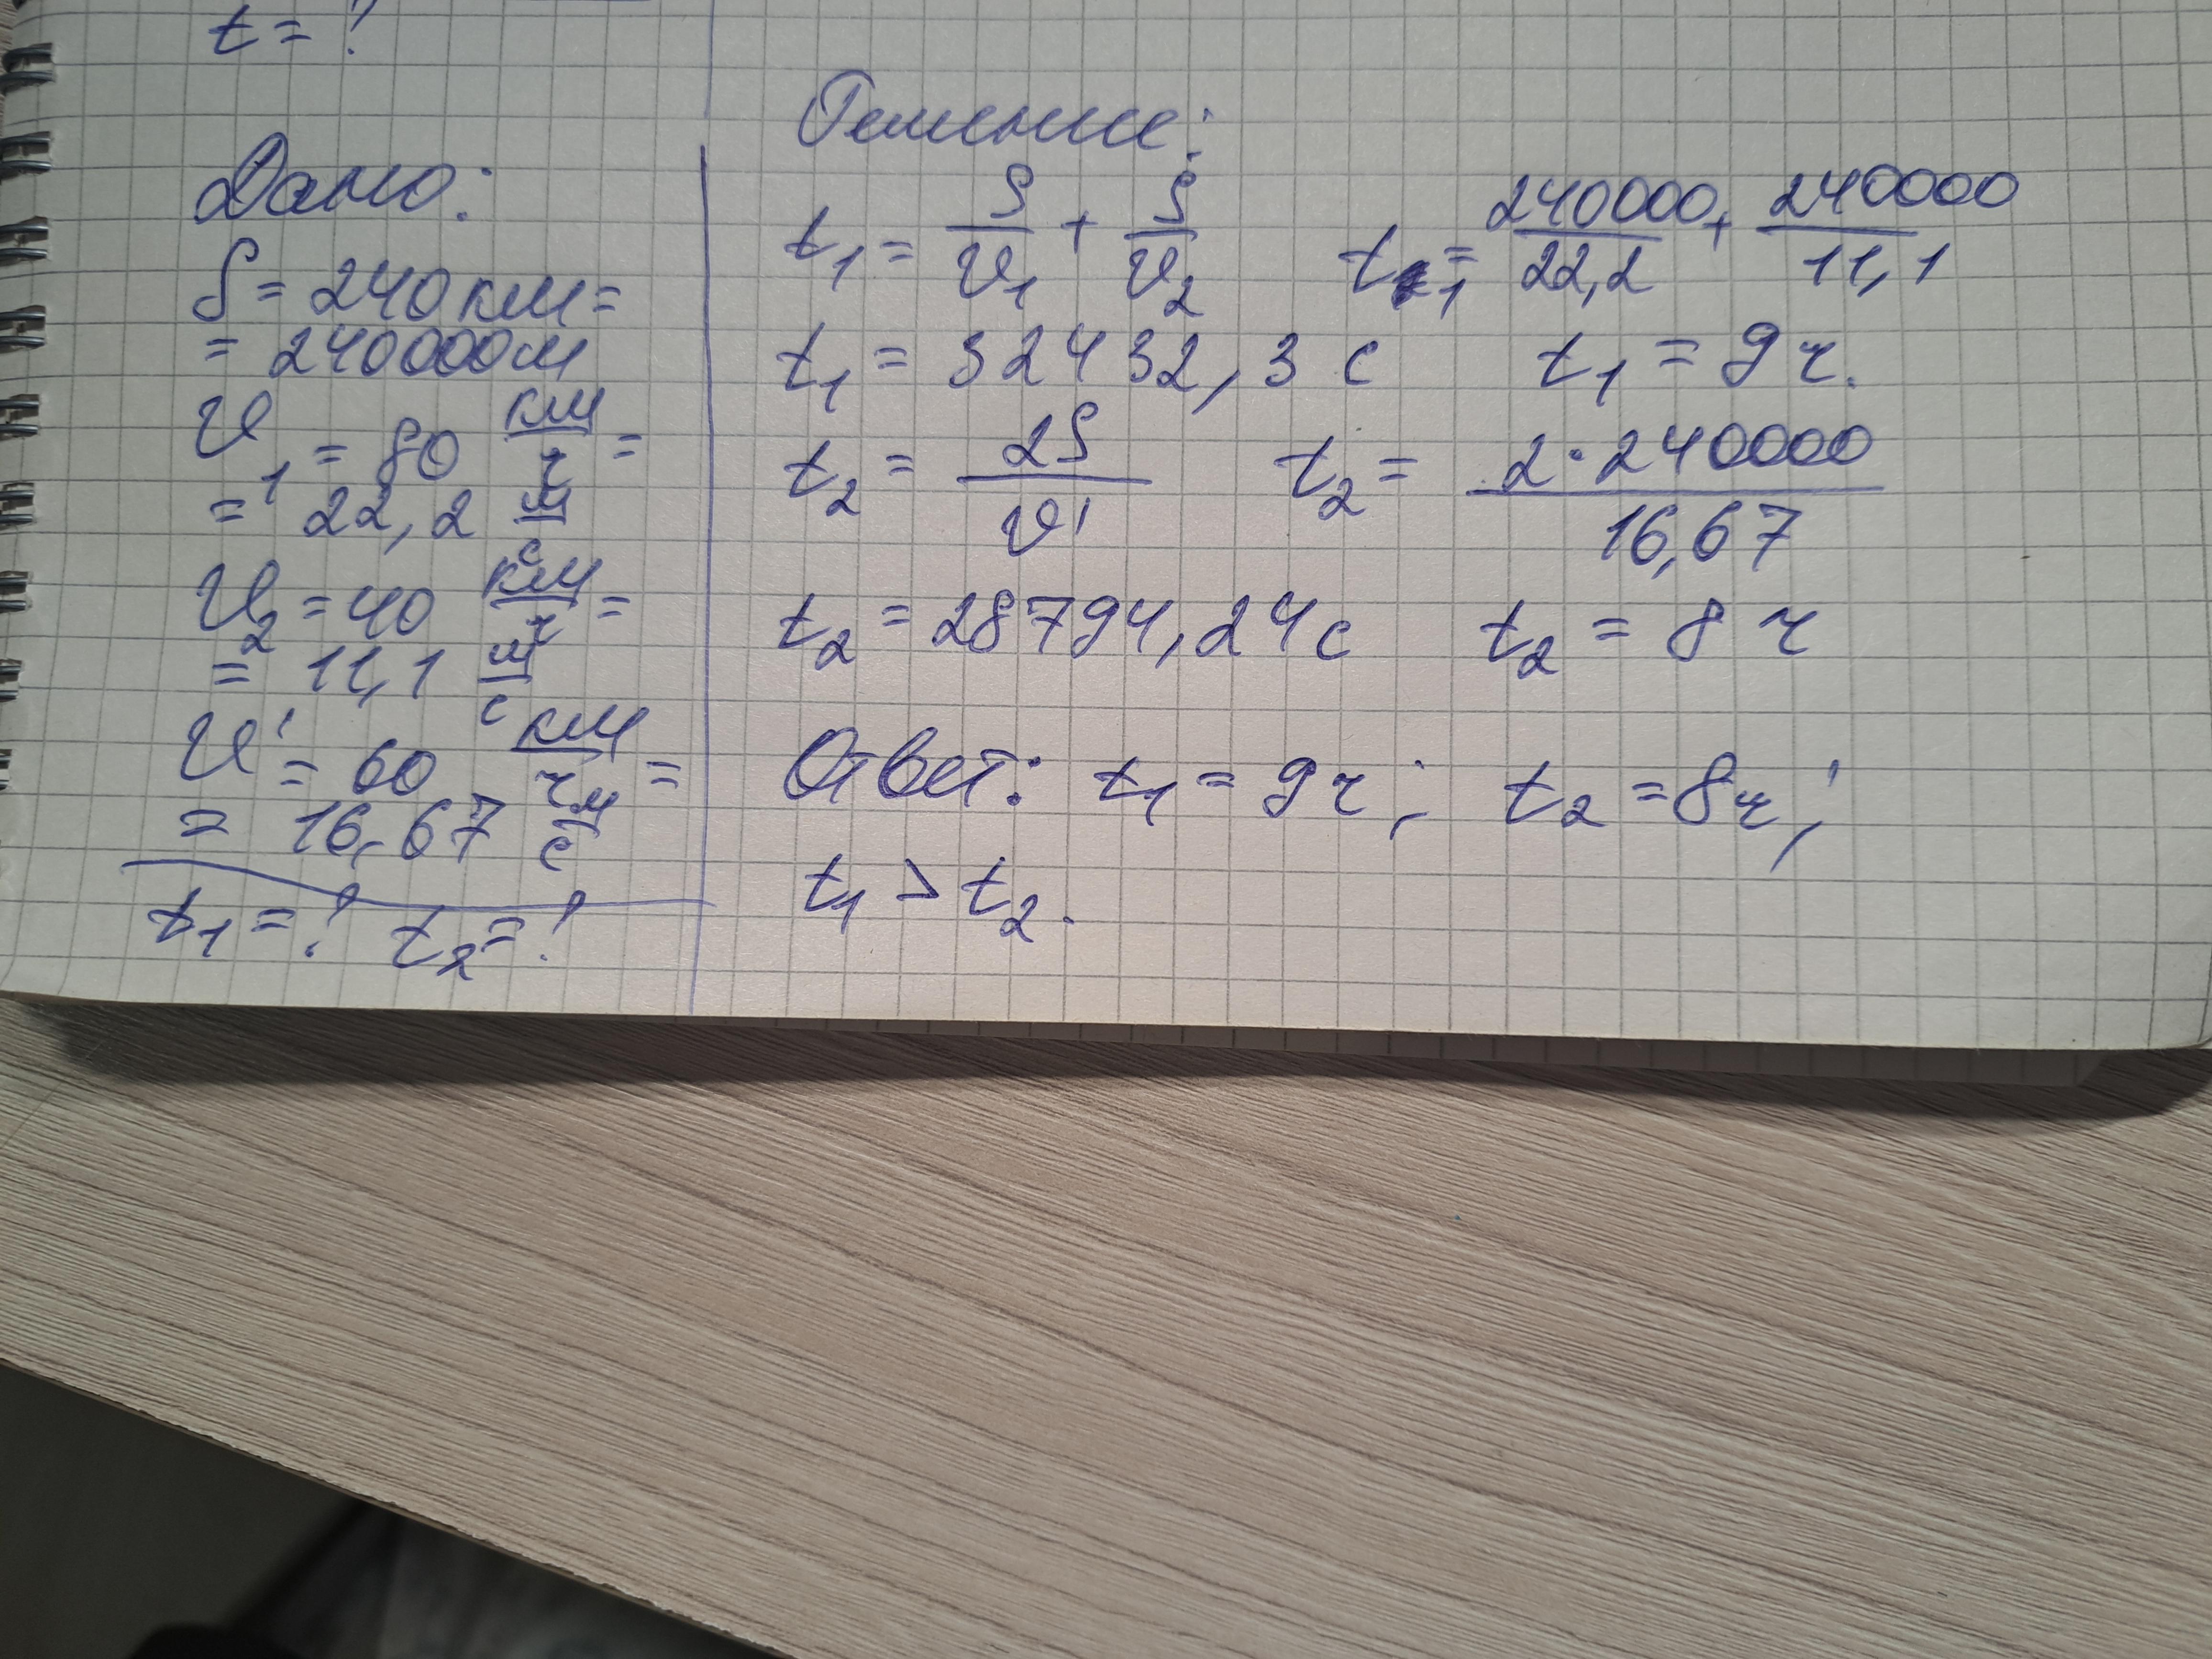 t = ?
Дано:
S = 240 км =
= 240000 м
v₁ = 80 км/ч =
= 22,2 м/с
v₂ = 40 км/ч =
= 11,1 м/с
v' = 60 км/ч =
= 16,67 м/с
t₁ = ? t₂ = ?
Решение:
t₁ = S/v₁ + S/v₂ t₁ = 240000/22,2 + 240000/11,1
t₁ = 32432,3 с t₁ = 9 ч.
t₂ = 2S/v' t₂ = 2·240000/16,67
t₂ = 28794,24 с t₂ = 8 ч
Ответ: t₁ = 9 ч; t₂ = 8 ч;
t₁ > t₂.